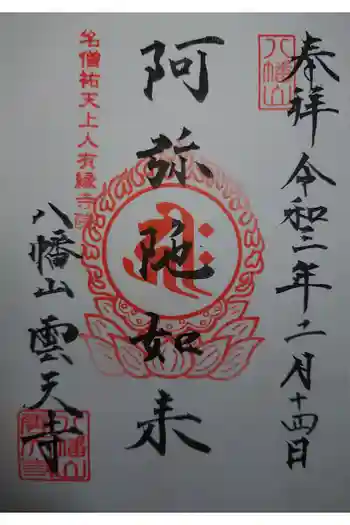 奉拝 令和三年二月十四日
八幡山
阿弥陀如来
名僧祐天上人有縁寺院
八幡山 雲天寺